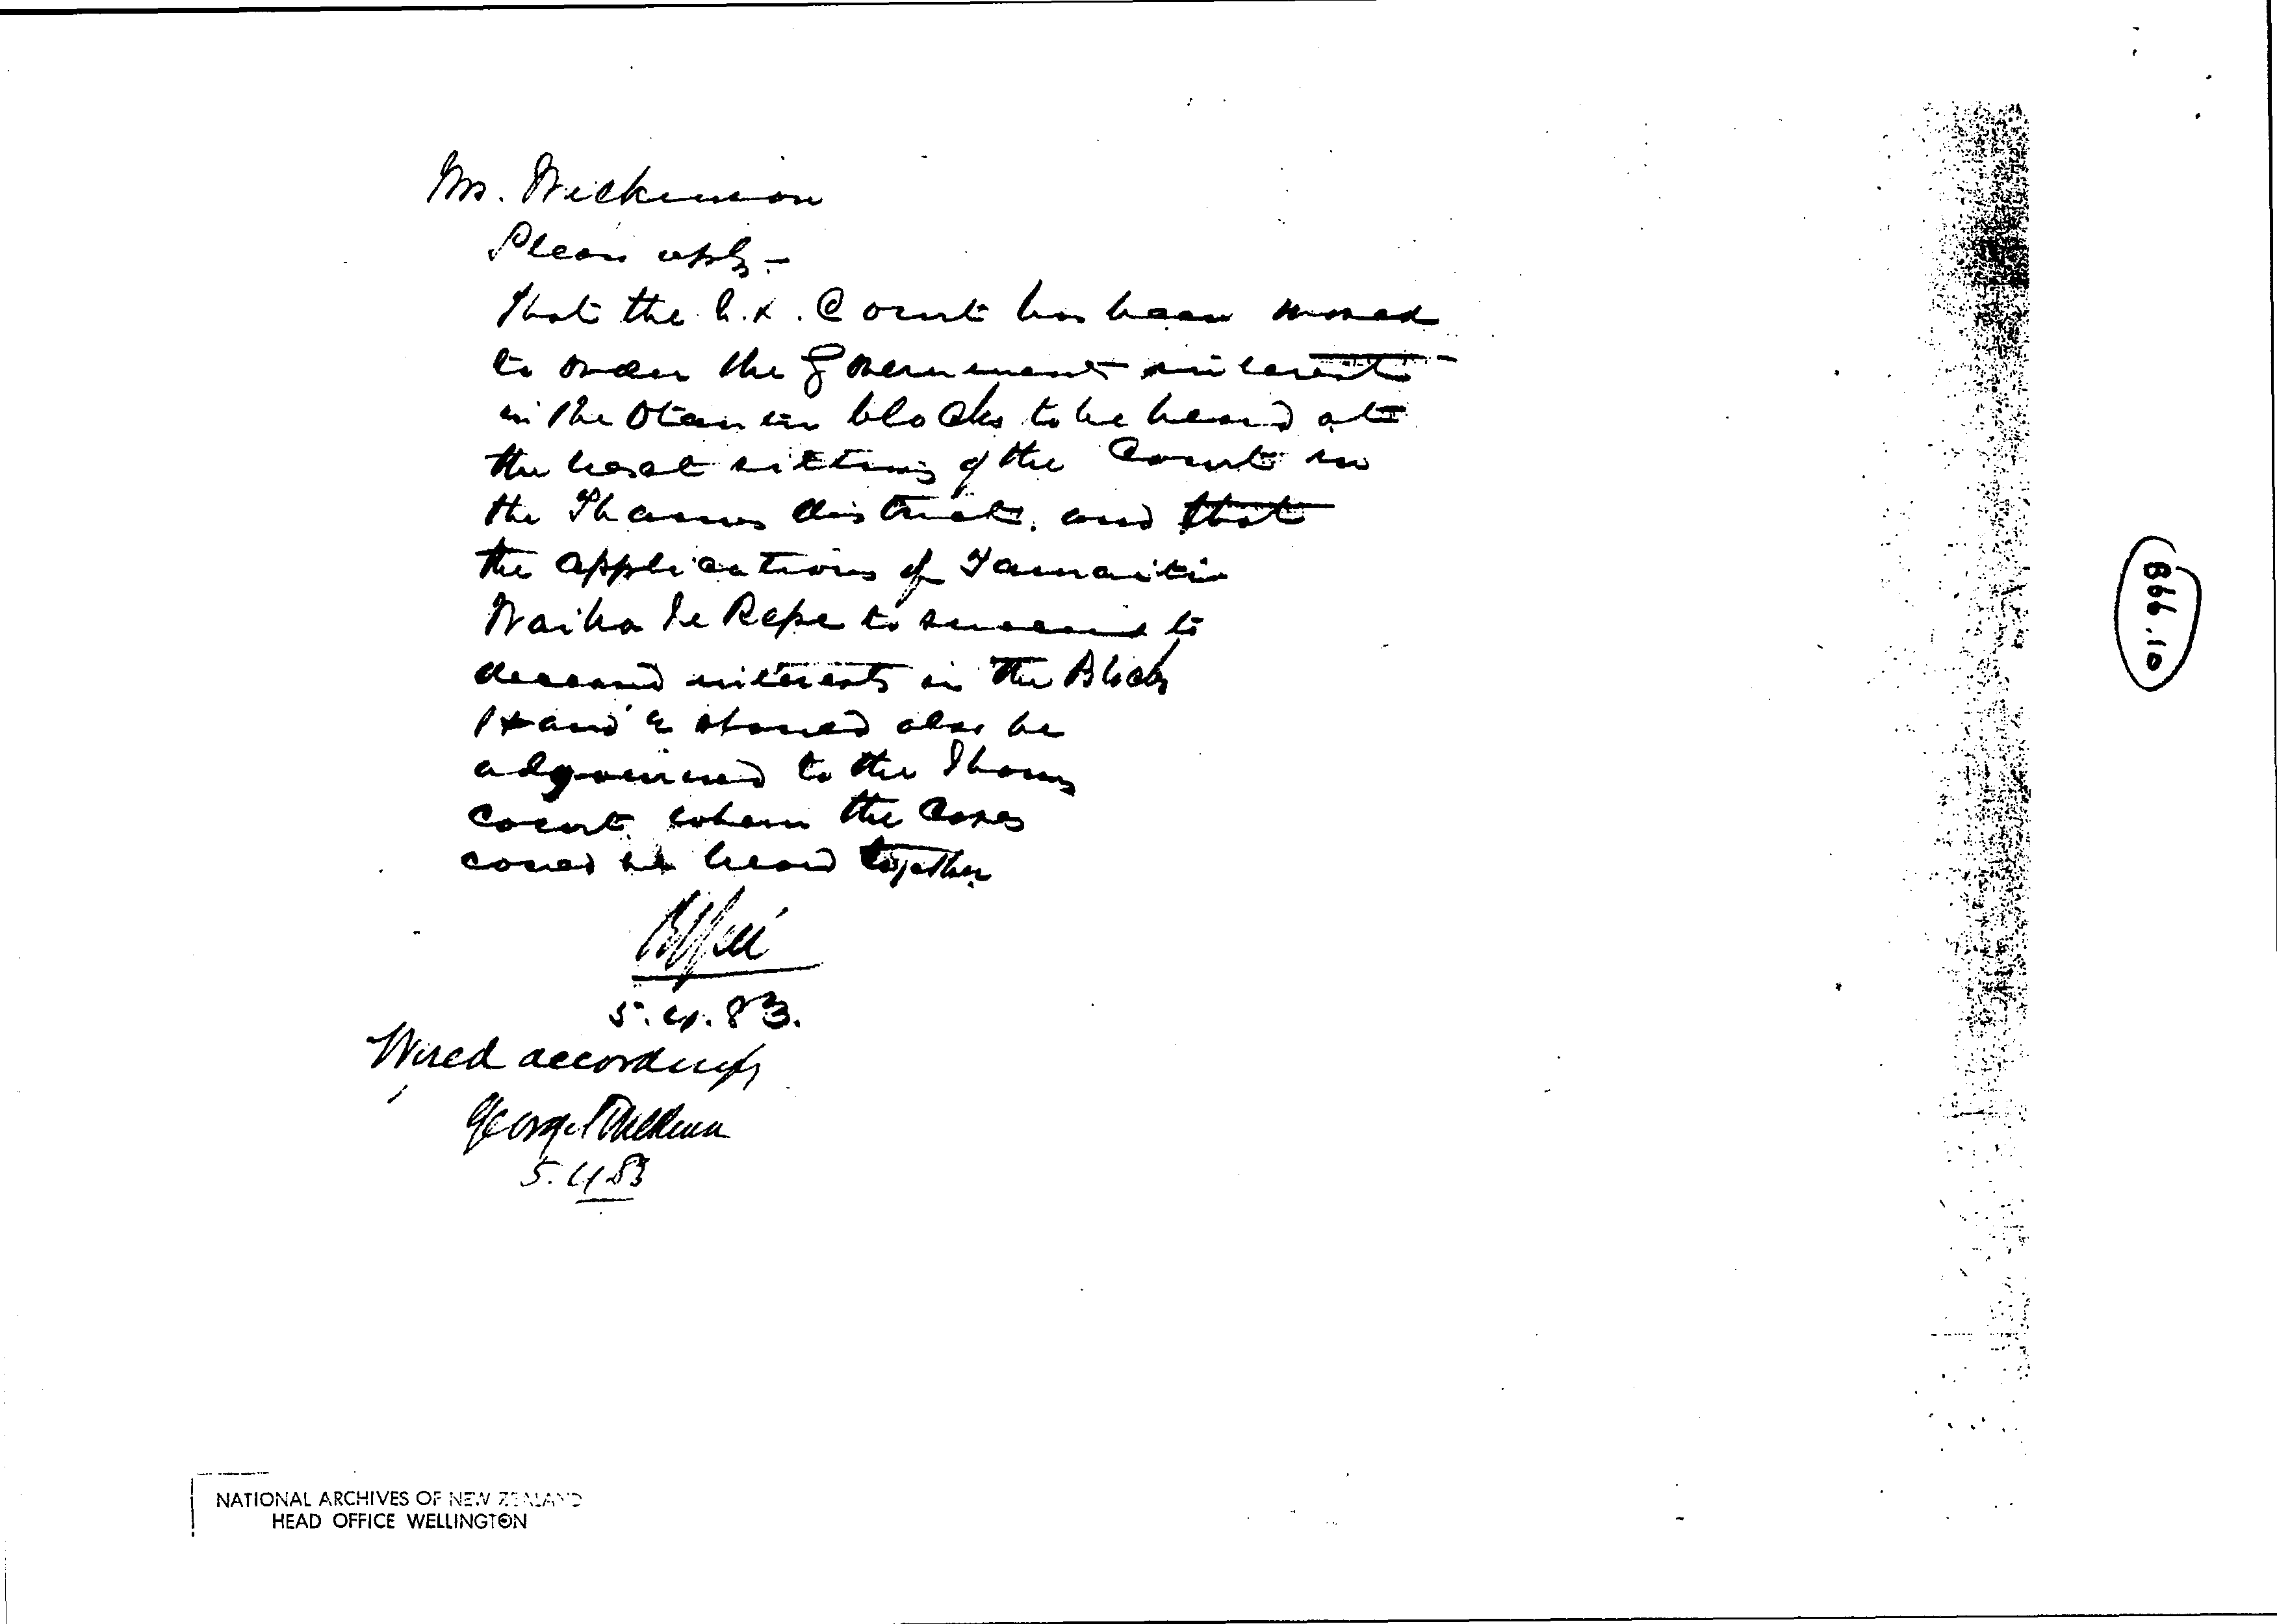 Mr. Wilkinson
Please reply –
that the N. L. Court has been moved
to order the Government interests
in the Otau blocks to be heard at
the next sitting of the Court in
the Thames district. and that
the applications of Tamaiti
Waiba Te Repe to succeed to
deceased interests in the Blocks
1 and 2 should also be
adjourned to the Thames
Court where the Cases
could be heard together
5.4.83.
Wired accordingly
George Wilkinson
5.4.83
B96.10
NATIONAL ARCHIVES OF NEW ZEALAND
HEAD OFFICE WELLINGTON